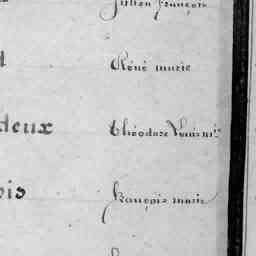 Julien François
René marie
deux Théodore Louis m.
ois François marie